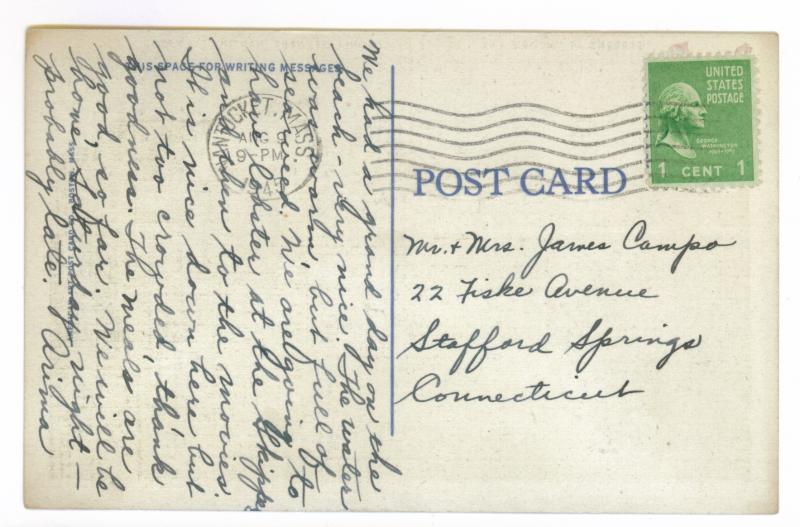 THIS SPACE FOR WRITING MESSAGES
We had a grand day on the
beach - very nice. The water
was warm, but full of
seaweed. We are going to
have lobster at the Skipper
and then to the movies.
It is nice down here but
not too crowded thank
goodness. The meals are
good, so far. We will be
home, Sunday night -
probably late. Arima
NANTUCKET, MASS.
AUG 9
9-PM
POST CARD
UNITED
STATES
POSTAGE
GEORGE
WASHINGTON
1 CENT 1
Mr. & Mrs. James Campo
22 Fiske Avenue
Stafford Springs
Connecticut